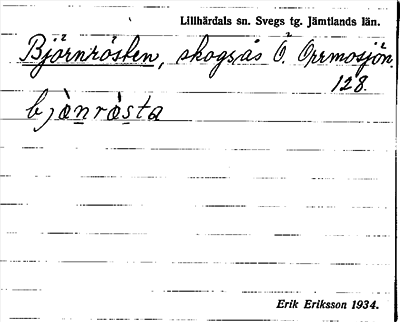 Lillhärdals sn. Svegs tg. Jämtlands län.
Björnrösten, skogsås Ö. Orrmosjön.
128.
bjæ̀nræ̀sta
Erik Eriksson 1934.